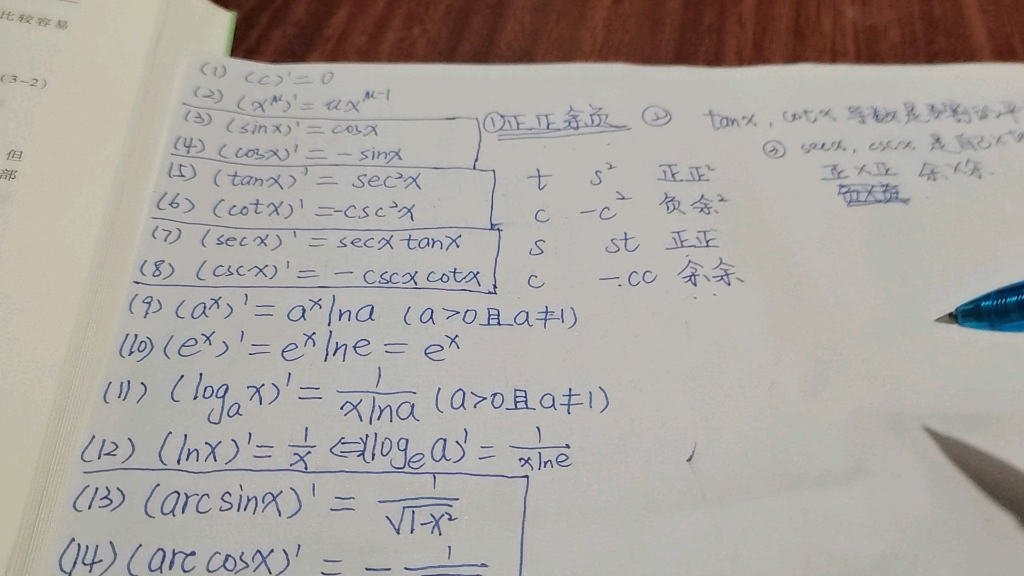 比较容易
(3-2)
但
部
(1) (c)'=0
(2) (x^μ)'=ux^μ-1
(3) (sinx)'=cosx
(4) (cosx)'=-sinx
(5) (tanx)'=sec²x
(6) (cotx)'=-csc²x
(7) (secx)'=secxtanx
(8) (cscx)'=-cscxcotx
(9) (aˣ)'=aˣlna (a>0且a≠1)
(10) (eˣ)'=eˣlne=eˣ
(11) (logₐx)'=1/xlna (a>0且a≠1)
(12) (lnx)'=1/x⇔(logₑa)'=1/xlne
(13) (arcsinx)'=1/√1-x²
(14) (arccosx)'=-1/
①正正余负
t s² 正正²
c -c² 负余²
s st 正正
c -cc 余余
② tanx, cotx 导数是
③ secx, cscx 是
正×正 余×余